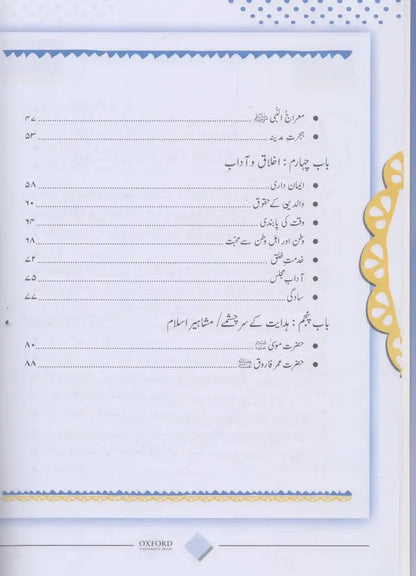 معراج النبی ﷺ ۴۷
ہجرتِ مدینہ ۵۳
باب چہارم : اخلاق و آداب
ایمان داری ۵۸
والدین کے حقوق ۶۰
وقت کی پابندی ۶۴
وطن اور اہلِ وطن سے محبّت ۶۸
خدمتِ خلق ۷۲
آدابِ مجلس ۷۵
سادگی ۷۷
باب پنجم : ہدایت کے سرچشمے/ مشاہیرِ اسلام
حضرت موسیٰ ۸۰
حضرت عمر فاروق ۸۸
OXFORD
UNIVERSITY PRESS